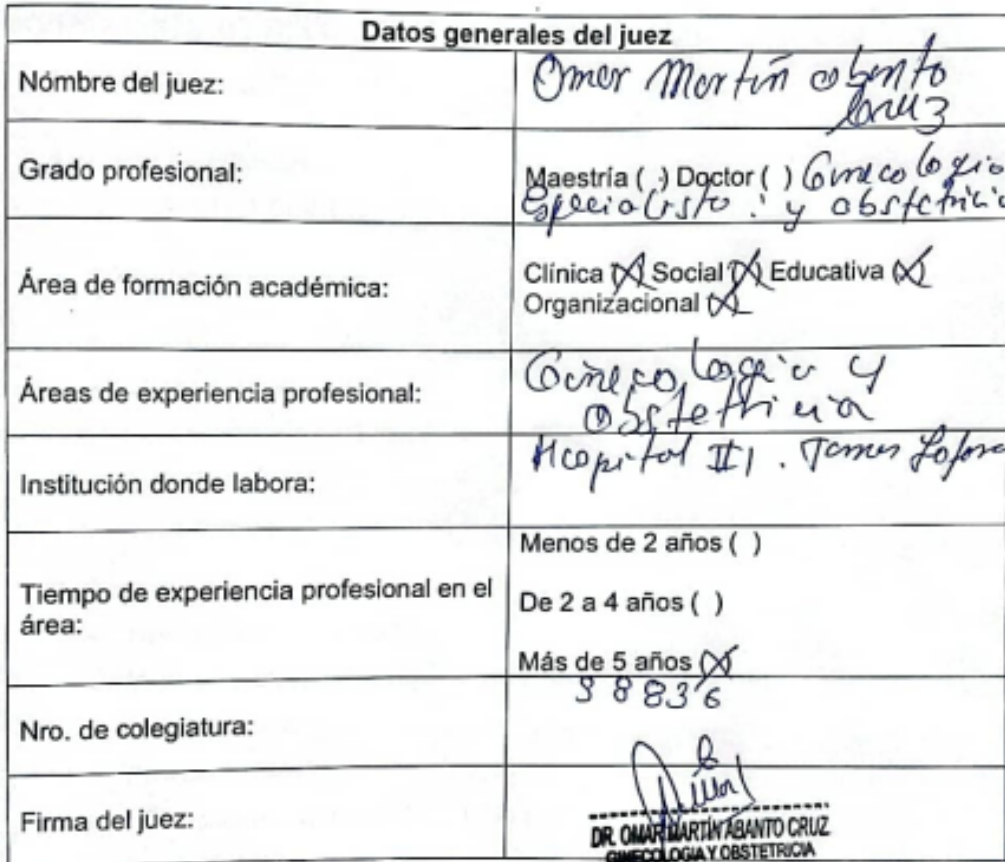 Datos generales del juez
Nómbre del juez: Omar Martín abanto
Cruz
Grado profesional: Maestría ( ) Doctor ( ) Ginecologia
Especialista : y obstetricia
Área de formación académica: Clínica (X) Social (X) Educativa (X)
Organizacional (X)
Áreas de experiencia profesional: Ginecologia y
obstetricia
Institución donde labora: Hospital II 1.
Tiempo de experiencia profesional en el
área:
Menos de 2 años ( )
De 2 a 4 años ( )
Más de 5 años (X)
Nro. de colegiatura: 38836
Firma del juez:
DR. OMAR MARTÍN ABANTO CRUZ
GINECOLOGIA Y OBSTETRICIA